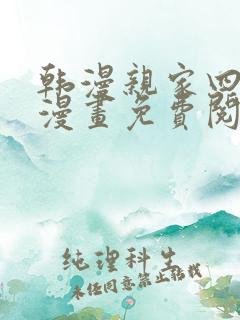 韩漫親家四
漫畫免費閱
纯理科生
未经同意禁止转载